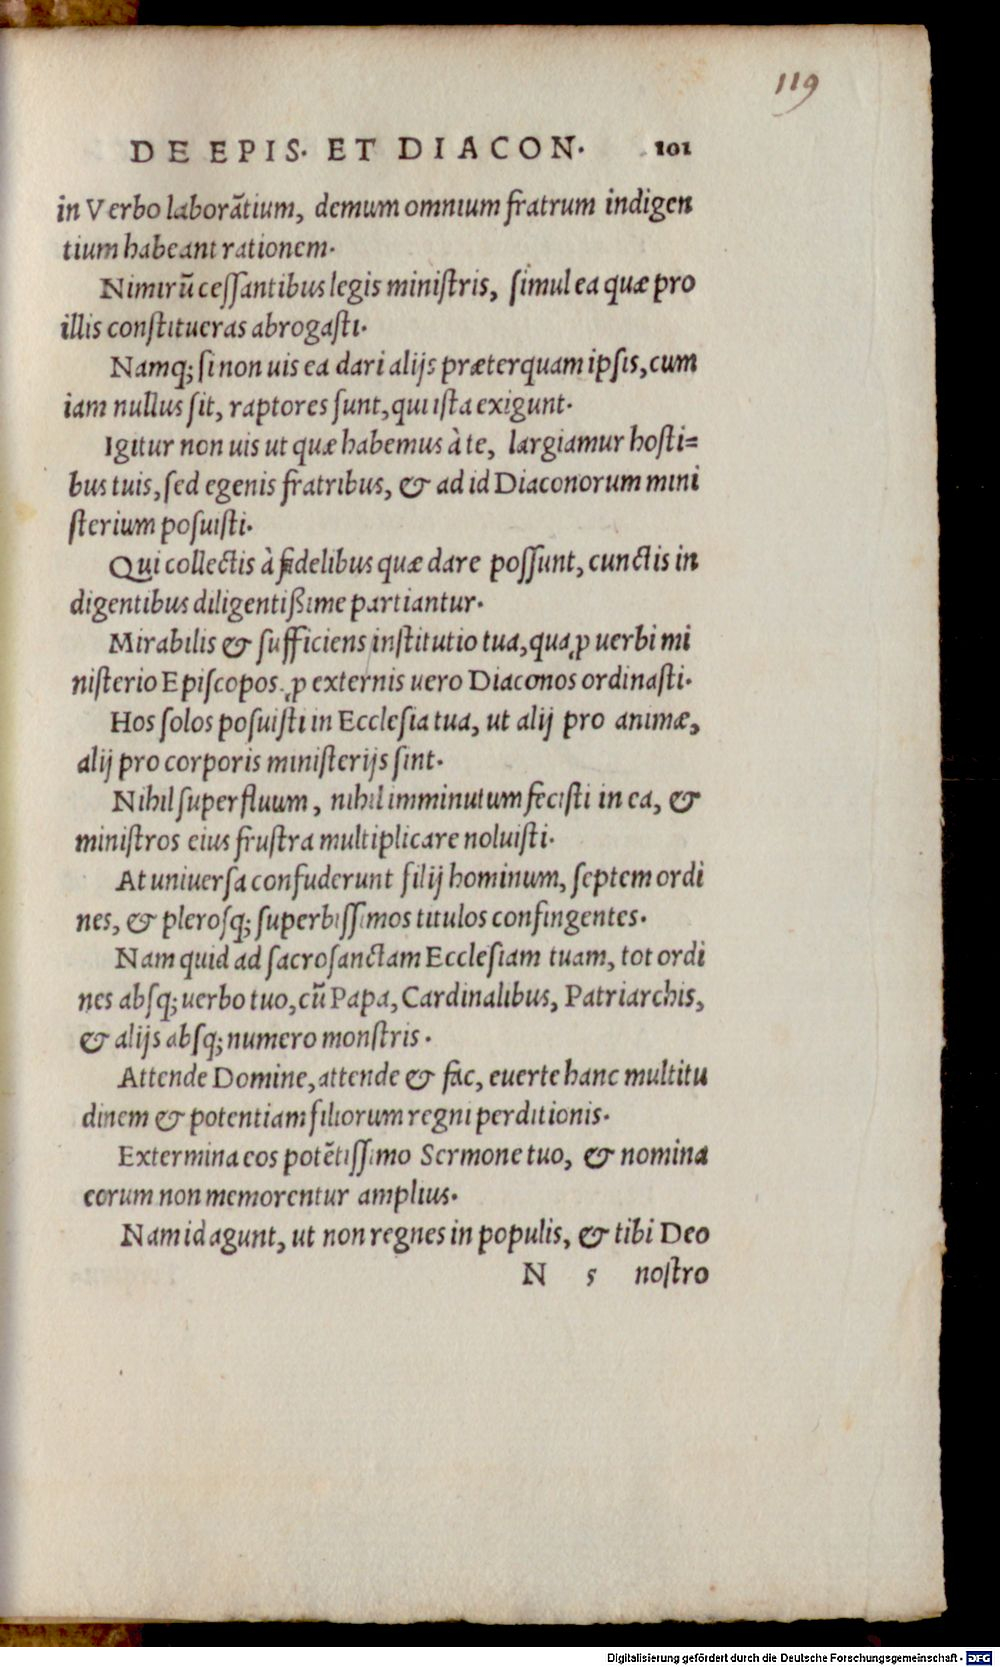 119
DE EPIS. ET DIACON. 101
in Verbo laborãtium, demum omnium fratrum indigen
tium habeant rationem.
Nimirũ cessantibus legis ministris, simul ea quæ pro
illis constitueras abrogasti.
Namq; si non uis ea dari alijs præterquam ipsis, cum
iam nullus sit, raptores sunt, qui ista exigunt.
Igitur non uis ut quæ habemus à te, largiamur hosti=
bus tuis, sed egenis fratribus, & ad id Diaconorum mini
sterium posuisti.
Qui collectis à fidelibus quæ dare possunt, cunctis in
digentibus diligentißime partiantur.
Mirabilis & sufficiens institutio tua, qua ꝓ uerbi mi
nisterio Episcopos, ꝓ externis uero Diaconos ordinasti.
Hos solos posuisti in Ecclesia tua, ut alij pro animæ,
alij pro corporis ministerijs sint.
Nihil superfluum, nihil imminutum fecisti in ea, &
ministros eius frustra multiplicare noluisti.
At uniuersa confuderunt filij hominum, septem ordi
nes, & plerosq; superbissimos titulos confingentes.
Nam quid ad sacrosanctam Ecclesiam tuam, tot ordi
nes absq; uerbo tuo, cũ Papa, Cardinalibus, Patriarchis,
& alijs absq; numero monstris.
Attende Domine, attende & fac, euerte hanc multitu
dinem & potentiam filiorum regni perditionis.
Extermina eos potẽtissimo Sermone tuo, & nomina
eorum non memorentur amplius.
Nam id agunt, ut non regnes in populis, & tibi Deo
N 5 nostro
Digitalisierung gefördert durch die Deutsche Forschungsgemeinschaft - DFG